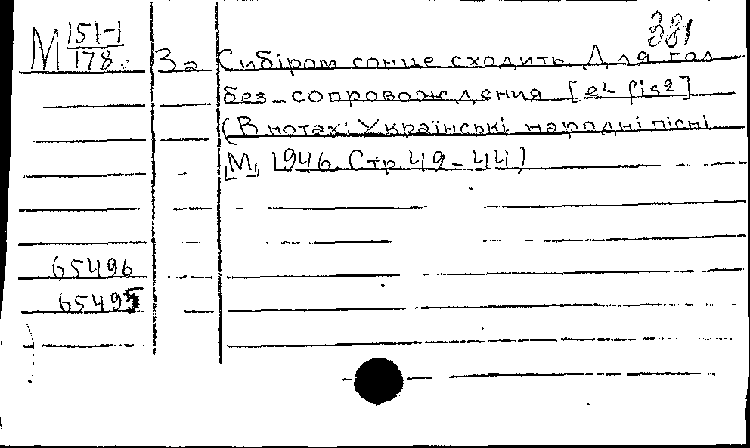 381
М 151-1/178. За Сибіром сонце сходить Для гол
без сопровождения [e¹ fis²]
(В нотах: Українські народні пісні
М, 1946 Стр 49-44)
65496
65495